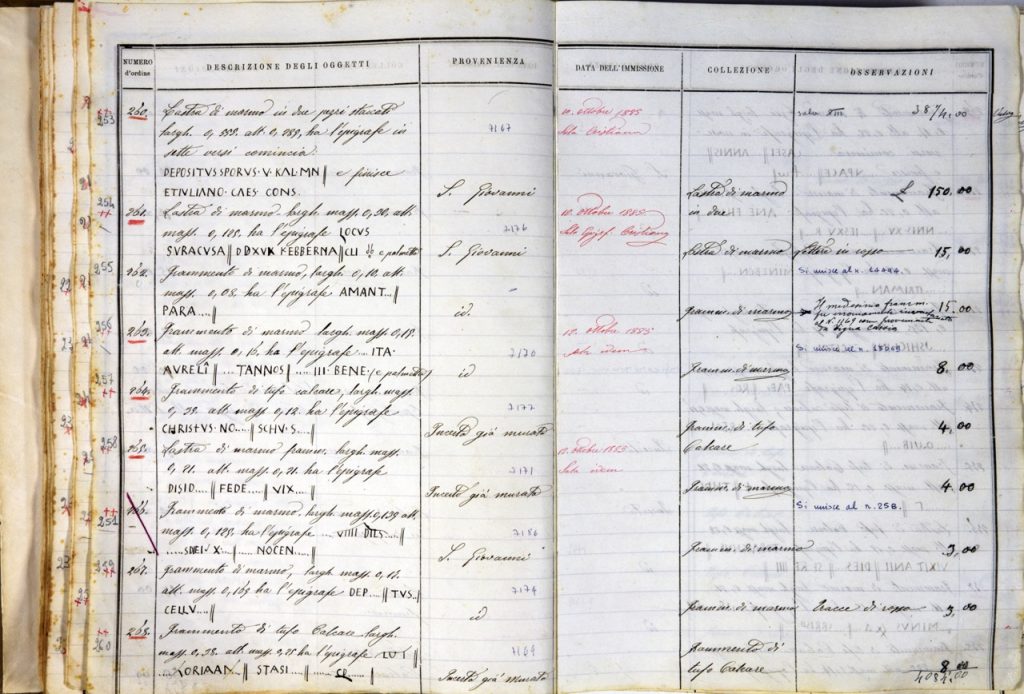 NUMERO d'ordine DESCRIZIONE DEGLI OGGETTI PROVENIENZA DATA DELL'IMMISSIONE COLLEZIONE OSSERVAZIONI
3874.00
253 260. Lastra di marmo in due pezzi staccati 10. ottobre 1885 sala XIII
largh. 0,552. alt. 0,282, ha l'epigrafe in 7167 Sala Cristiana
sette versi comincia
DEPOSITVS SPORUS · V · KAL · MN || e finisce
ET IVLIANO · CAES · CONS. S. Giovanni Lastra di marmo £ 150,00
254 261. Lastra di marmo largh. mass. 0,20. alt. 10. ottobre 1885 in due
mass. 0,128. ha l'epigrafe LOCUS 7176
SVRACUSA || DDXVK FEBBERNA || CLI e palmetta S. Giovanni Lastra di marmo Lettere in rosso 15,00
255 262. Frammento di marmo, largh. 0,10. alt. Si unisce al n.
mass. 0,08. ha l'epigrafe AMANT..||
PARA.... id. Framm. di marmo Il medesimo framm. 15.00
256 263. Frammento di marmo largh. mass. 0,18. 10. ottobre 1885
alt. mass. 0,13. ha l'epigrafe .... ITA · 7170 Sala idem Si unisce al n.
AVRELÎ || .... TANNOS || .... III · BENE · (e palmetta) id Framm. di marmo 8.00
257 264. Frammento di tufo calcare, largh. mass.
alt. mass. 0,12. ha l'epigrafe 7177
CHRISTVS · NO.... || SCHV · S.... || Incerto già murato Framm. di tufo 4,00
258 265. Lastra di marmo framm. largh. mass. 10. ottobre 1885 Calcare
0,21. alt. mass. 0,21. ha l'epigrafe 7171 Sala idem
DISID.... || FEDE.... || VIX.... || Incerto già murato Framm. di marmo 4.00
251 266. Frammento di marmo, largh. mass. 0,135 alt. Si unisce al n. 258.
mass. 0,125. ha l'epigrafe .... VIIII DIES.... || 7186
.....SDEI · X.... || .... NOCEN.... || S. Giovanni Framm. di marmo 3,00
259 267. Frammento di marmo, largh. mass. 0,13.
alt. mass. 0,165 ha l'epigrafe DEP.... || TVS.... 7174
CELLV....|| id Framm. di marmo tracce di rosso 3,00
260 268. Frammento di tufo Calcare largh.
alt. mass. 0,25 ha l'epigrafe LO I 7169 Frammento di
KORIAAN || STASI.... || .... CP || Incerto già murato tufo Calcare 8.00
4084.00